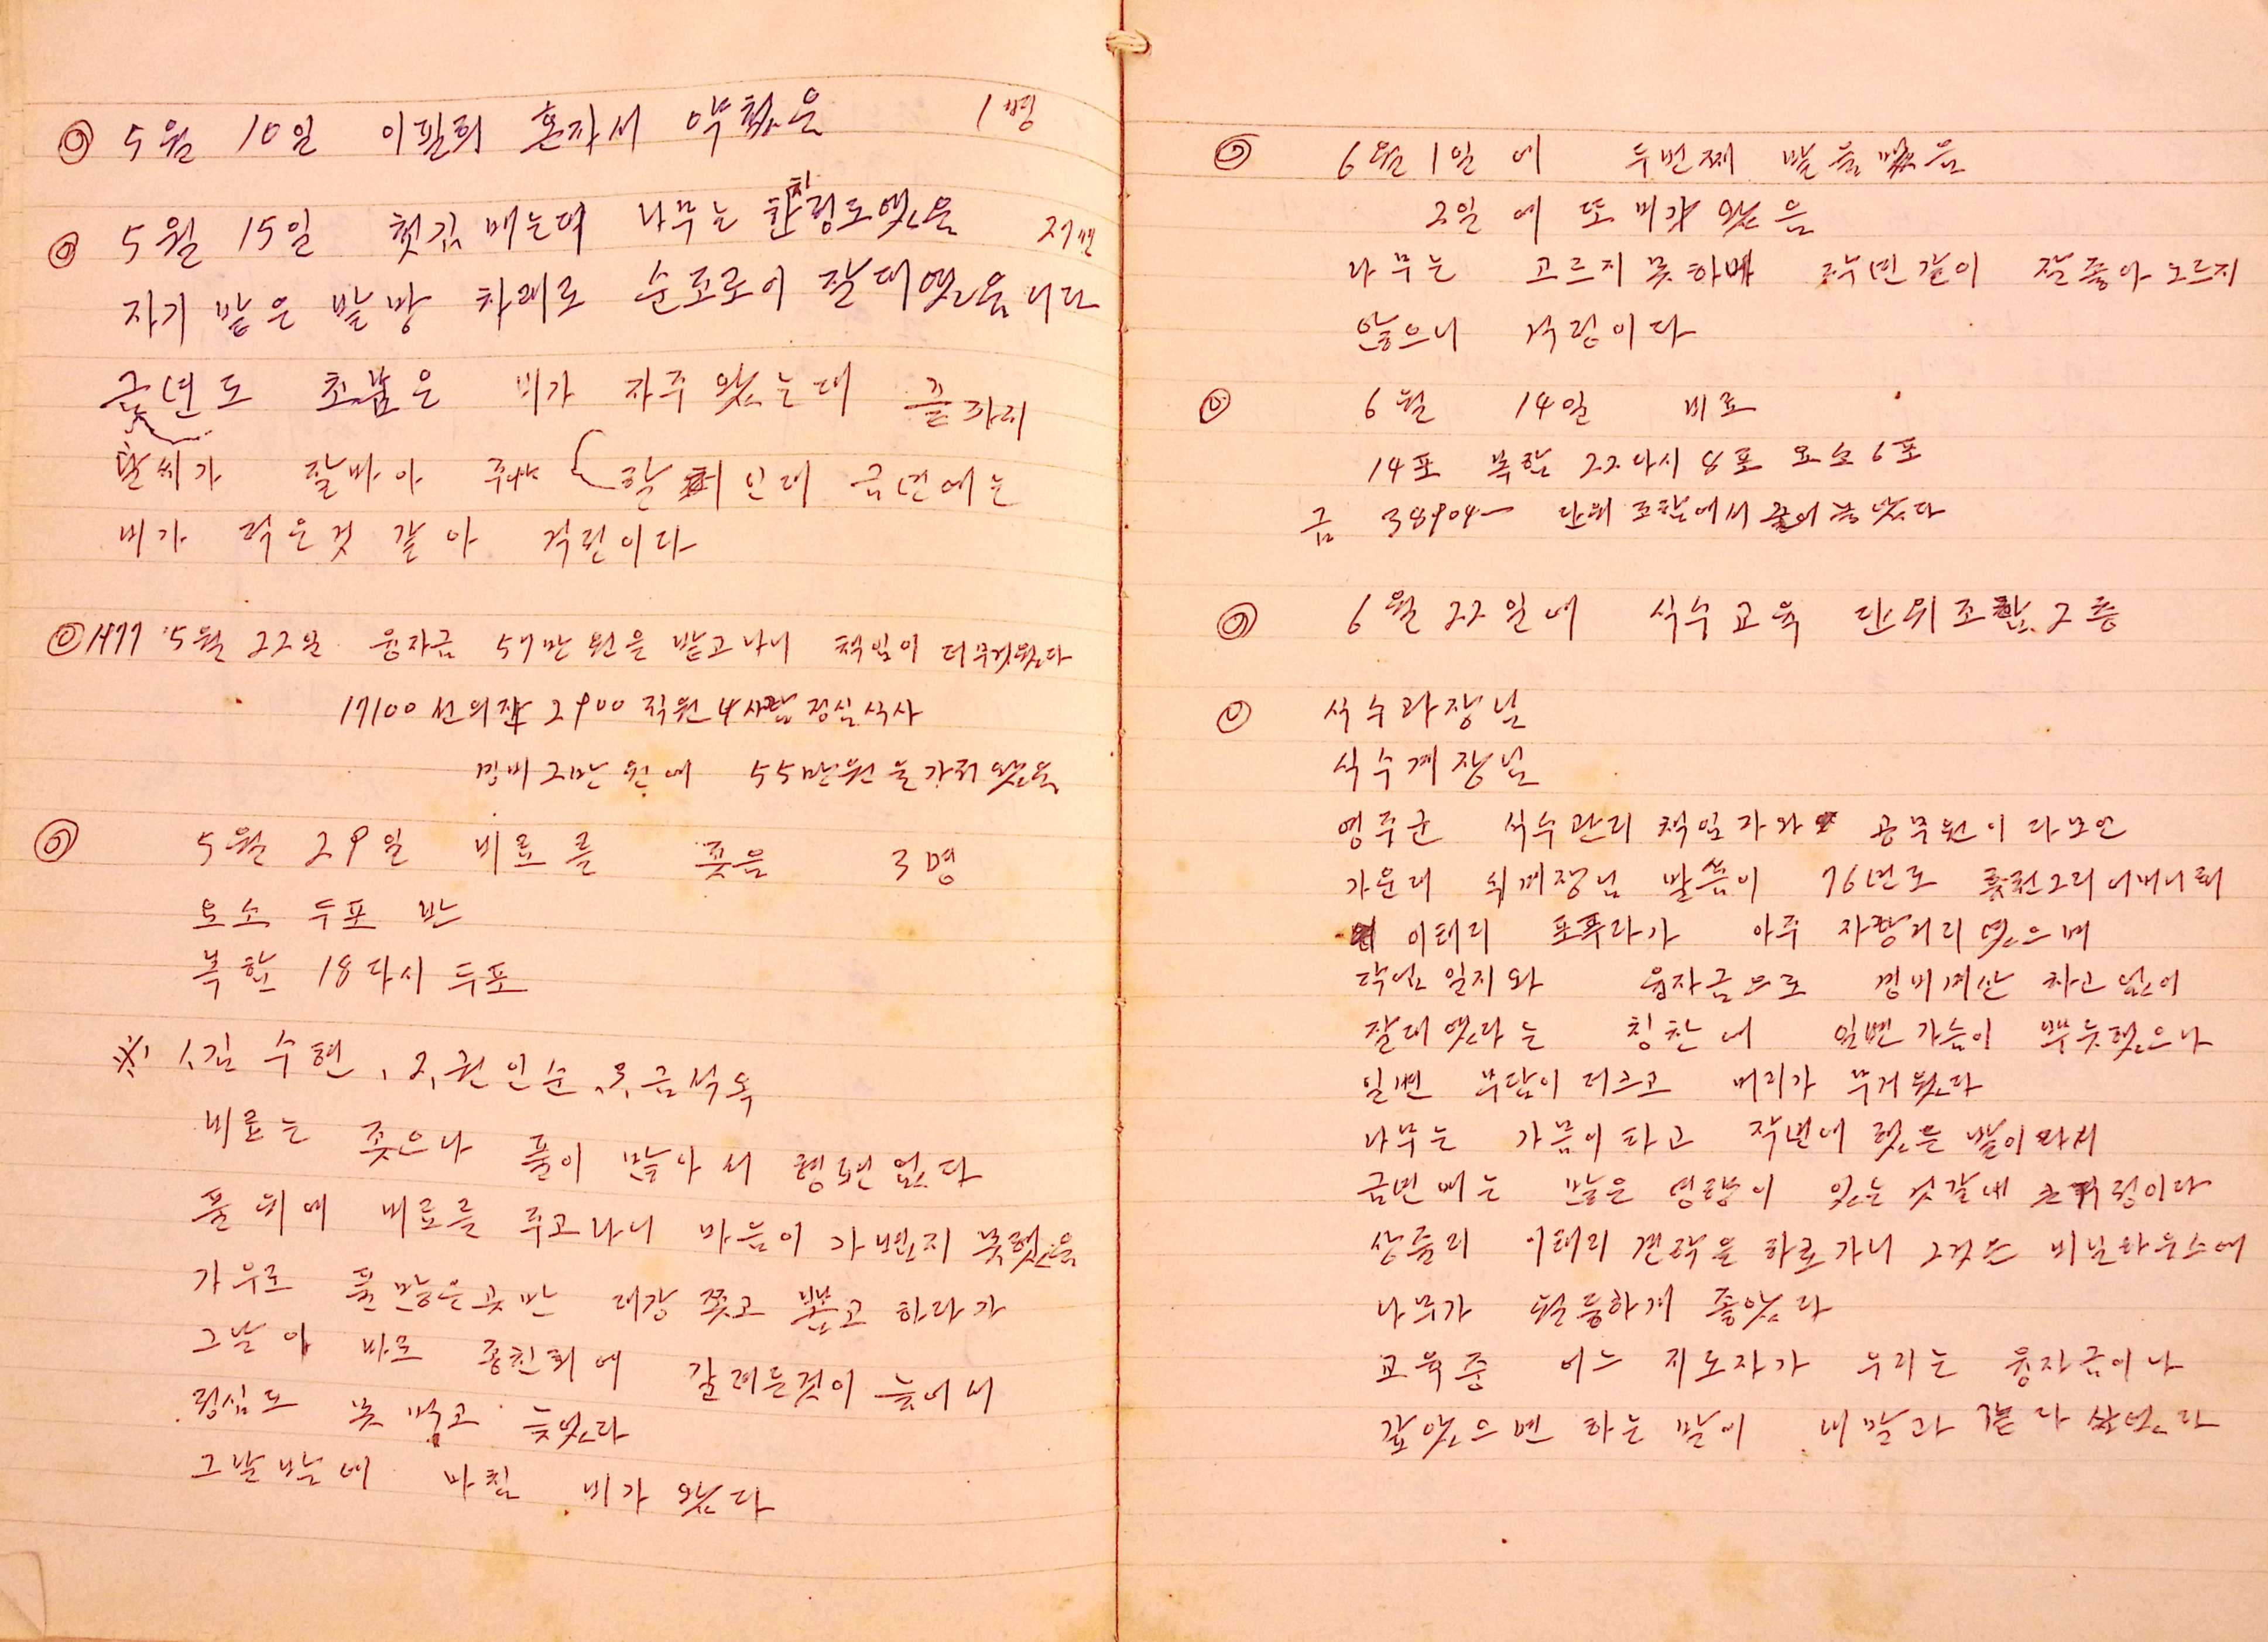 ◎ 5월 10일 이필희 혼자서 약첬음 1명
◎ 5월 15일 첫김 매는데 나무는 한창정도엿음
자기 밭은 밭방 차래로 순조로이 잘대엿읍니다
금년도 초봄은 비가 자주왔는대 끝까지
날씨가 잘바아 주야 할 터인대 금년에는
비가 적은것 같아 걱정이다
◎ 1977 5월 22일 융자금 57만원을 받고나니 책임이 더무거웠다
17100 선의자 2900 직원 4사람 점심식사
경비 2만원에 55만원을 가저왔음
◎ 5월 29일 비료를 줏음 3명
요소 두포 반
복합 18다시 두포
※ 1, 김수현, 2, 권인순, 3, 금석옥
비료는 줏으나 풀이 많아서 형편없다
풀위에 비료를 주고나니 마음이 가볍지 못했음
가우로 풀많은곳만 대강 쯪고 뽑고 하다가
그날이 바로 종친회에 갈려든것이 늦어서
점심도 못먹고 늦었다
그날밤에 마침 비가 왔다
◎ 6월 1일에 두번째 밭을맸음
2일에 또 비가 왔음
나무는 고르지못하며 작년같이 잘좋아 노르지
않으니 걱정이다
◎ 6월 14일 비료
14포 복합 22다시 8포 요소 6포
금 38904一 단위조합에서
◎ 6월 22일에 식수교육 단위조합 2층
◎ 식수과장님
식수계장님
영주군 식수관리 책임자와 공무원이 다모인
가운데 식계장님 말씀이 76년도 룻천2리 어머니회
이태리 포푸라가 아주 자랑거리였으며
작업일지와 융자금으로 경비계산 차고없이
잘대였다는 칭찬에 일변가슴이 뿌듯했으나
일변 부담이 더크고 머리가 무거웠다
나무는 가뭄이타고 작년에 했든 밭이라서
금년에는 많은 영향이 있는 것같네 걱정이다
상줄리 이태리 견학을 하로가니 그것은 비닐하우스에
나무가 월등하게 좋았다
교육중 어느 지도자가 우리는 융자금이나
갚았으면 하는 말이 내말과 같다 싶었다